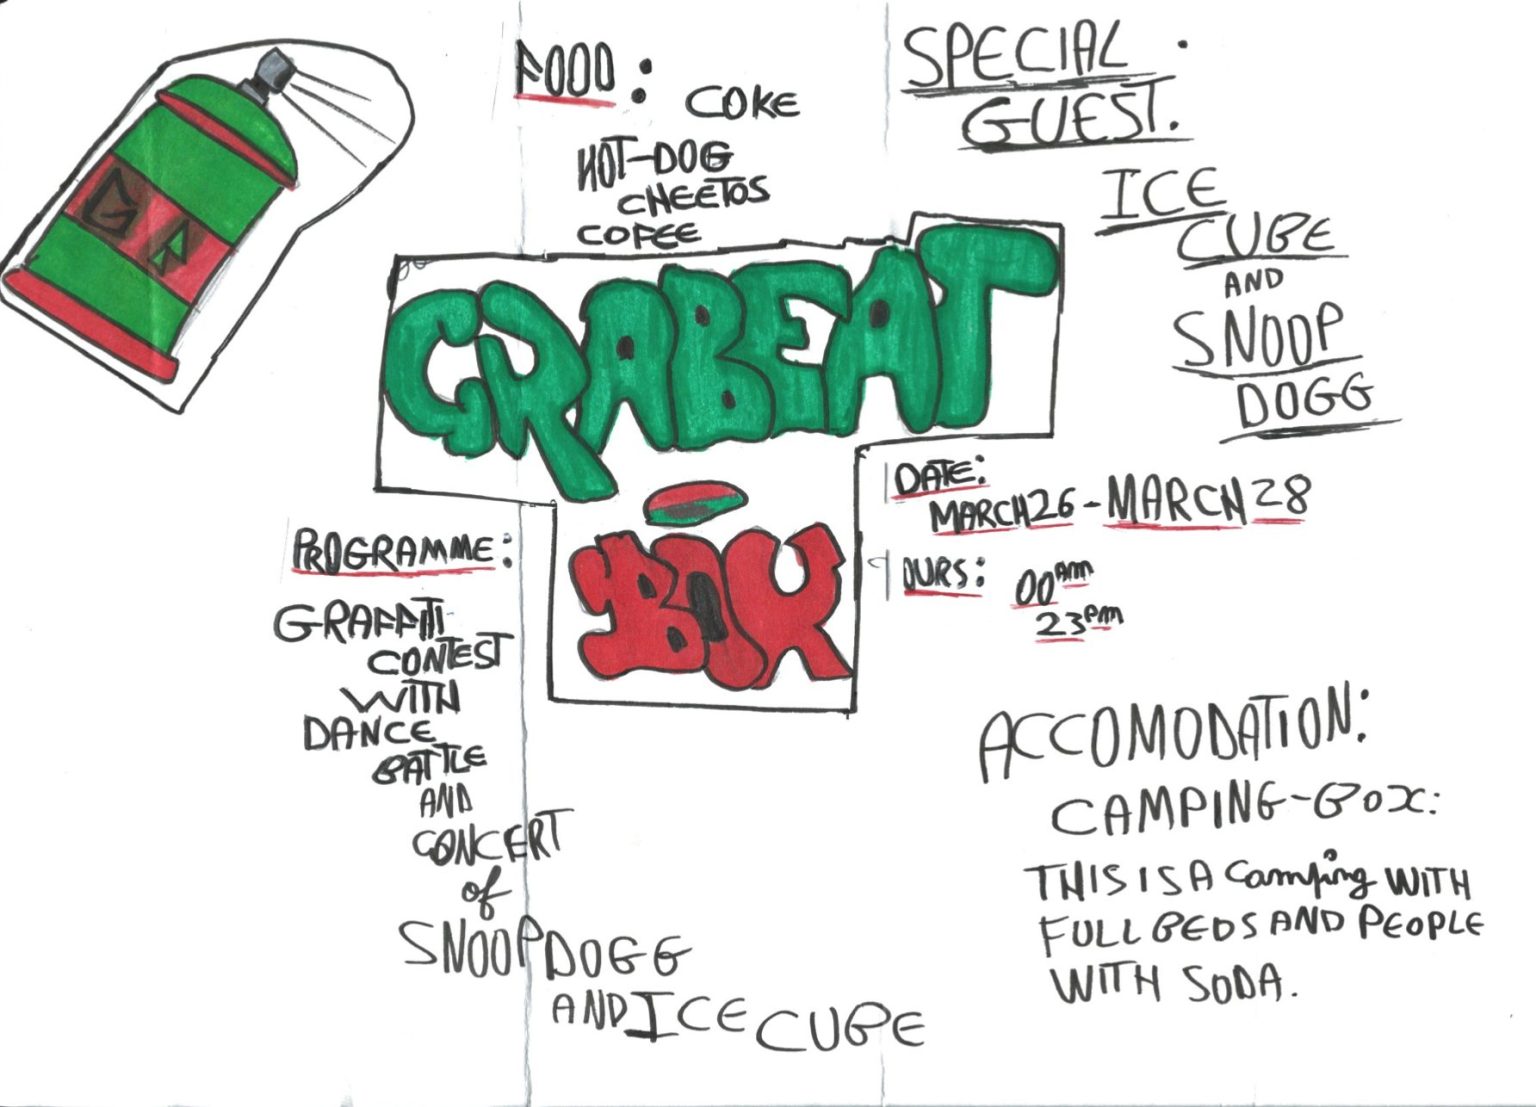 FOOD:
COKE
HOT-DOG
CHEETOS
COFEE
SPECIAL
GUEST.
ICE
CUBE
AND
SNOOP
DOGG
GRABEAT
BOX
DATE:
MARCH 26 - MARCH 28
OURS:
00 AM
23 PM
PROGRAMME:
GRAFFITI
CONTEST
WITH
DANCE
BATTLE
AND
CONCERT
of
SNOOP DOGG
AND ICE CUBE
ACCOMODATION:
CAMPING-BOX:
THIS IS A Camping WITH
FULL BEDS AND PEOPLE
WITH SODA.